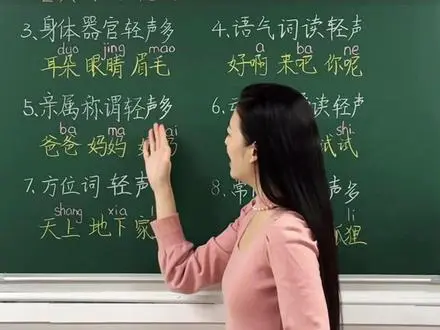 3、身体器官轻声多
duo jing mao
耳朵 眼睛 眉毛
4、语气词读轻声
a ba ne
好啊 来吧 你呢
5、亲属称谓轻声多
ba ma
爸爸 妈妈
6、 读轻声
shi
试试
7、方位词 轻声
shang xia
天上 地下 家
8、 声多
li
狸